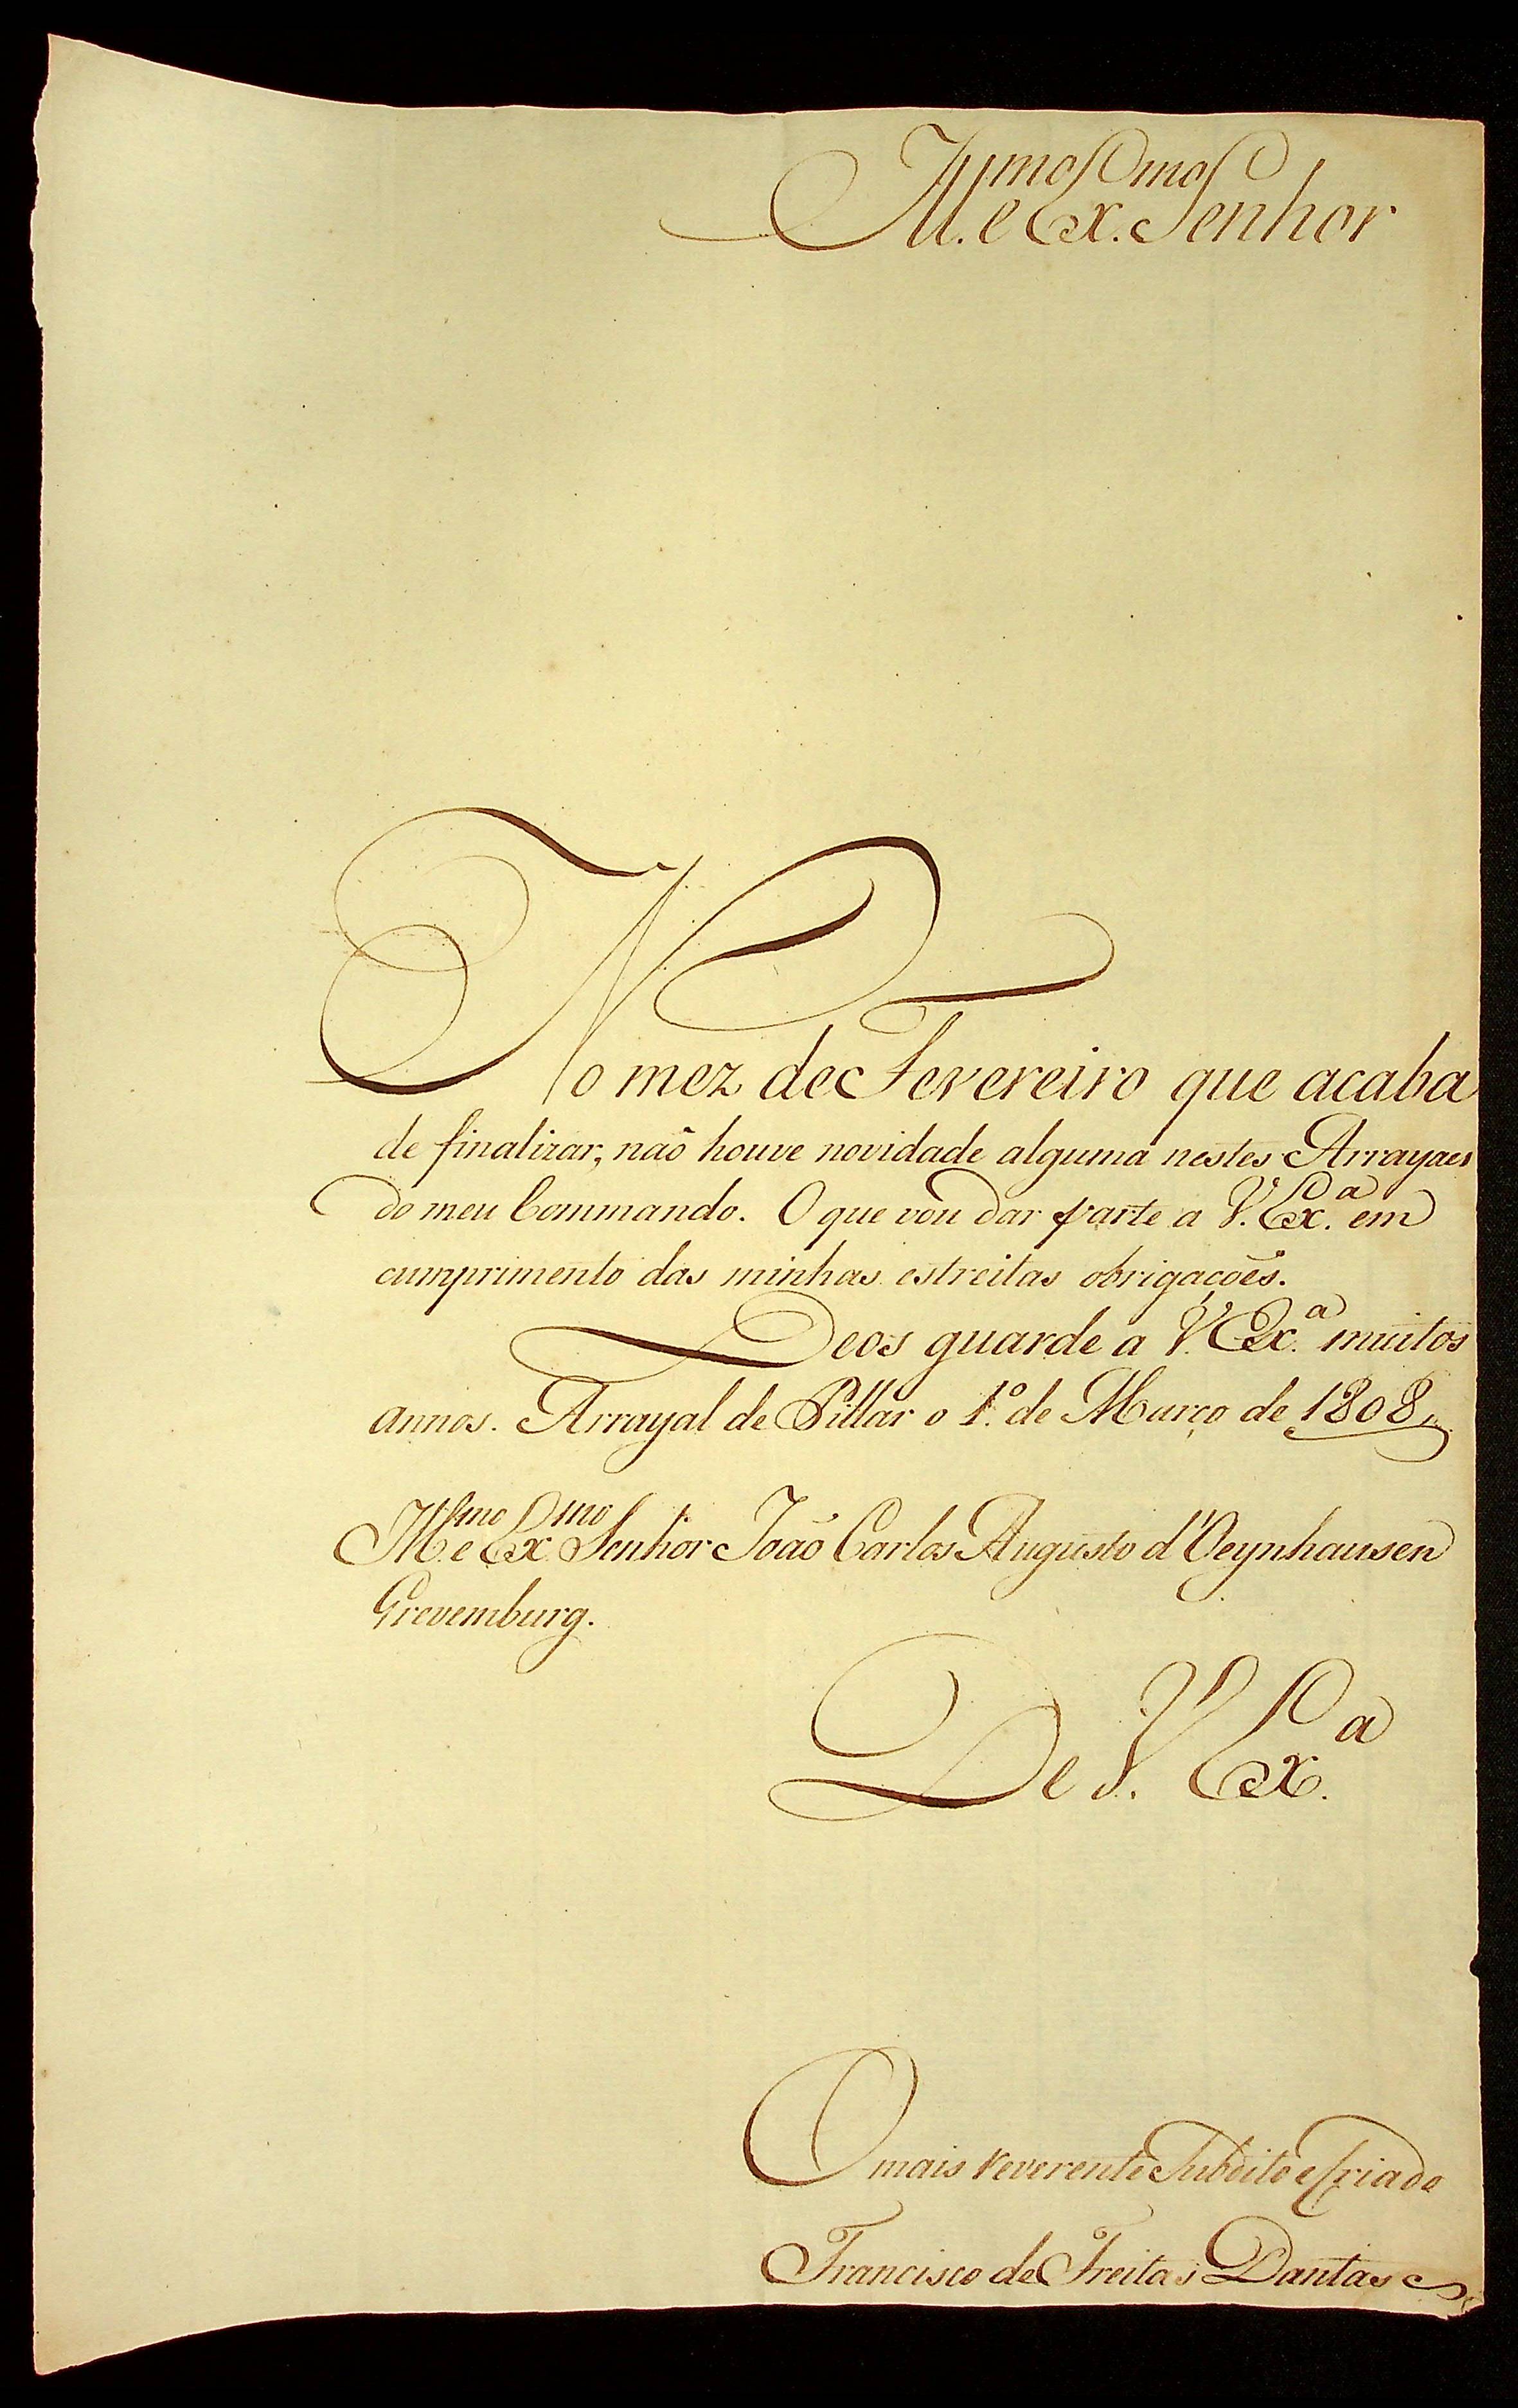 Ill.mo e Ex.mo Senhor
No mez de Fevereiro que acaba
de finalizar, naõ houve novidade alguma nestes Arrayaes
do meu Commando. O que vou dar parte a V. Ex.a em
cumprimento das minhas estreitas obrigaçoẽs.
Deos guarde a V. Ex.a muitos
annos. Arrayal de Pillar o 1.o de Março de 1808,,
Ill.mo e Ex.mo Senhor Joaõ Carlos Augusto d'Oeynhausen
Grevemburg.
De V. Ex.a
O mais reverente Subdito e Criado
Francisco de Freitas Dantas